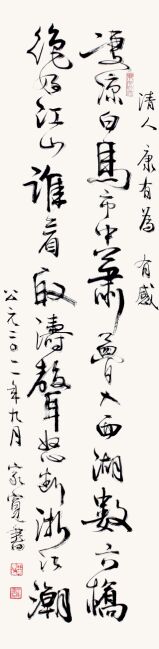 清人 康有為 有感
凄涼白馬市中蕭夢入西湖數六橋
絕好江山誰看取濤聲怒斷浙江潮
公元二〇一一年九月 家寬書